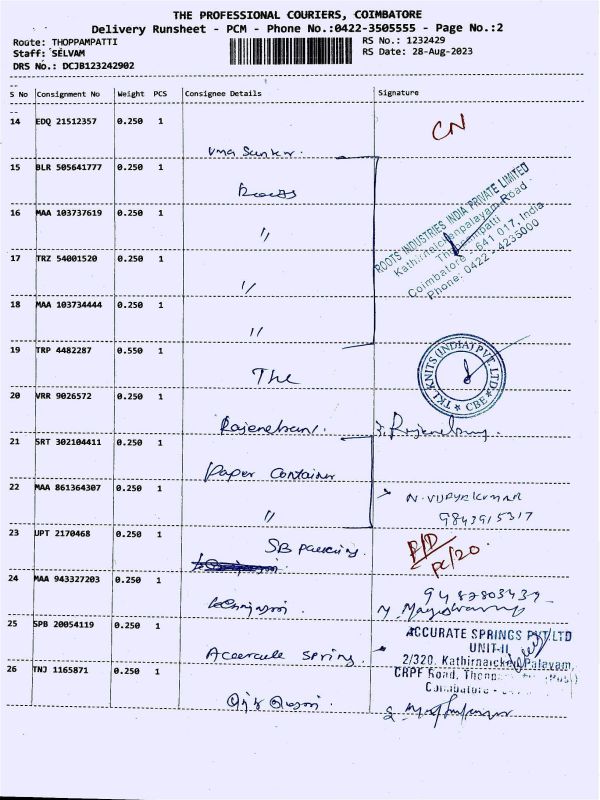 THE PROFESSIONAL COURIERS, COIMBATORE
Delivery Runsheet - PCM - Phone No.:0422-3505555 - Page No.:2
Route: THOPPAMPATTI
Staff: SELVAM
DRS No.: DCJB123242902
RS No.: 1232429
RS Date: 28-Aug-2023
S No Consignment No Weight PCS Consignee Details Signature
14 EDQ 21512357 0.250 1
CN
Uma Sankar.
15 BLR 505641777 0.250 1
Roots
ROOTS INDUSTRIES INDIA PRIVATE LIMITED
Kathirnaickenpalayam Road
Thoppampatti
Coimbatore - 641 017, India
Phone: 0422 - 4235000
16 MAA 103737619 0.250 1
"
17 TRZ 54001520 0.250 1
"
18 MAA 103734444 0.250 1
"
19 TRP 4482287 0.550 1
TKL KNITS (INDIA) PVT LTD
CBE
20 VRR 9026572 0.250 1
21 SRT 302104411 0.250 1
Paper Container
22 MAA 861364307 0.250 1
"
N. VIJAYAKUMAR
9843915317
23 UPT 2170468 0.250 1
SB Packing.
24 MAA 943327203 0.250 1
25 SPB 20054119 0.250 1
Accurate Spring.
ACCURATE SPRINGS PVT LTD
UNIT-II
2/320, Kathirnaicken Palayam,
CRPF Road,
Coimbatore -
26 TNJ 1165871 0.250 1